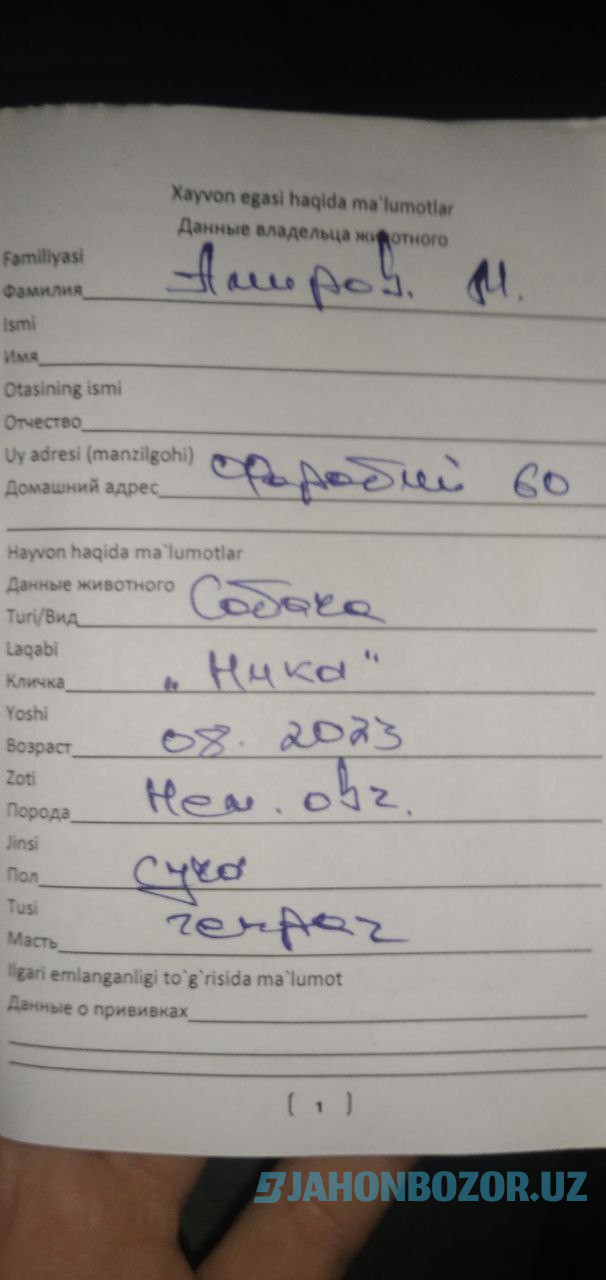 Xayvon egasi haqida ma`lumotlar
Данные владельца животного
Familiyasi
Фамилия Амиров. М.
Ismi
Имя
Otasining ismi
Отчество
Uy adresi (manzilgohi)
Домашний адрес Фаробий 60
Hayvon haqida ma`lumotlar
Данные животного
Turi/Вид Собака
Laqabi
Кличка „Ника"
Yoshi
Возраст 08. 2023
Zoti
Порода Нем. овч.
Jinsi
Пол сука
Tusi
Масть чепрач
Ilgari emlanganligi to`g`risida ma`lumot
Данные о прививках
( 1 )
JAHONBOZOR.UZ